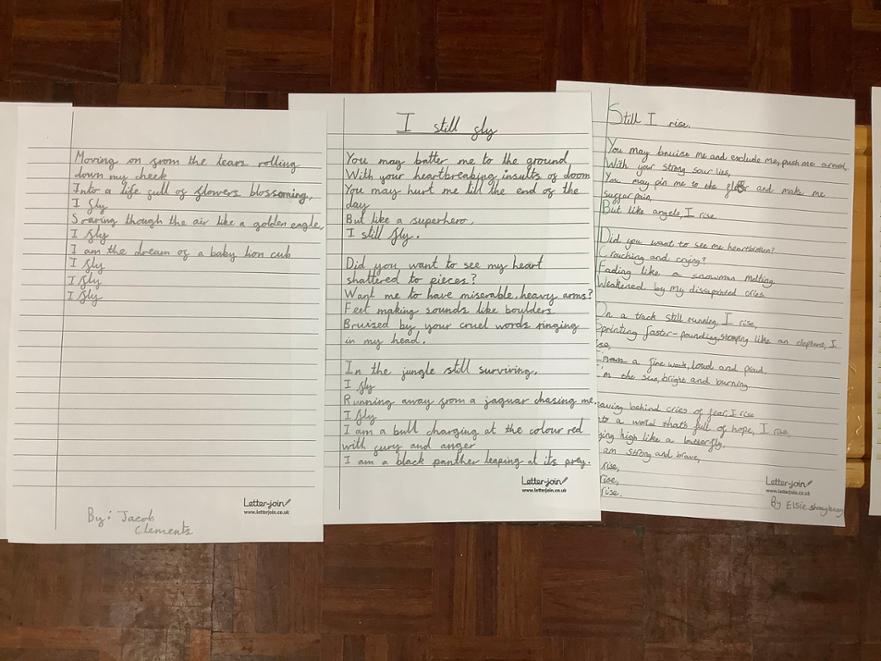 Moving on from the tears rolling
down my cheek
Into a life full of flowers blossoming,
I fly
Soaring though the air like a golden eagle,
I fly
I am the dream of a baby lion cub
I fly
I fly
I fly
Letter-join
www.letterjoin.co.uk
By: Jacob
Clements
I still fly
You may batter me to the ground
With your heartbreaking insults of doom
You may hurt me till the end of the
day
But like a superhero,
I still fly.
Did you want to see my heart
shattered to pieces?
Want me to have miserable, heavy arms?
Feet making sounds like boulders
Bruised by your cruel words ringing
in my head.
In the jungle still surviving,
I fly
Running away from a jaguar chasing me,
I fly
I am a bull charging at the colour red
with fury and anger
I am a black panther leaping at its prey.
Letter-join
www.letterjoin.co.uk
Still I rise.
You may bruise me and exclude me, push me around,
With your strong sour lies,
You may pin me to the floor and make me
suffer pain,
But like angels, I rise
Did you want to see me heartbroken?
Crouching and crying?
Fading like a snowman melting
Weakened by my dissapointed cries
On a track still running, I rise,
Sprinting faster-pounding, stomping like an elephant, I
rise,
a fire work, loud and proud
I'm the sun, bright and burning
behind cries of fear, I rise
to a world that's full of hope, I rise,
high like a butterfly,
am strong and brave,
rise,
rise,
rise.
Letter-join
www.letterjoin.co.uk
By Elsie